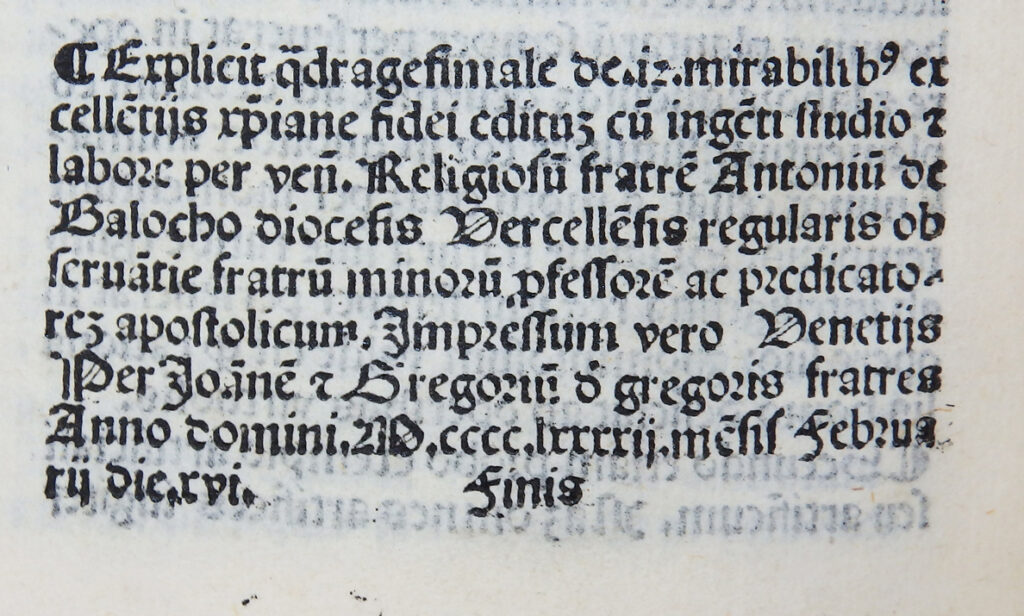 ¶ Explicit q̄dragesimale de .iz. mirabilibꝰ ex
cellētijs xp̄iane fidei edituꝫ cū ingēti studio ⁊
labore per ven̄. Religiosū fratrē Antoniū de
Balocho diocesis Vercellēsis regularis ob
seruātie fratrū minorū ꝓfessorē ac predicato-
reꝫ apostolicum. Impressum vero Venetijs
Per Joānē ⁊ Gregoriū d̄ gregoris fratres
Anno domini. M.cccc.lxxxxij. mēsis Februa
rij die .xvi. Finis